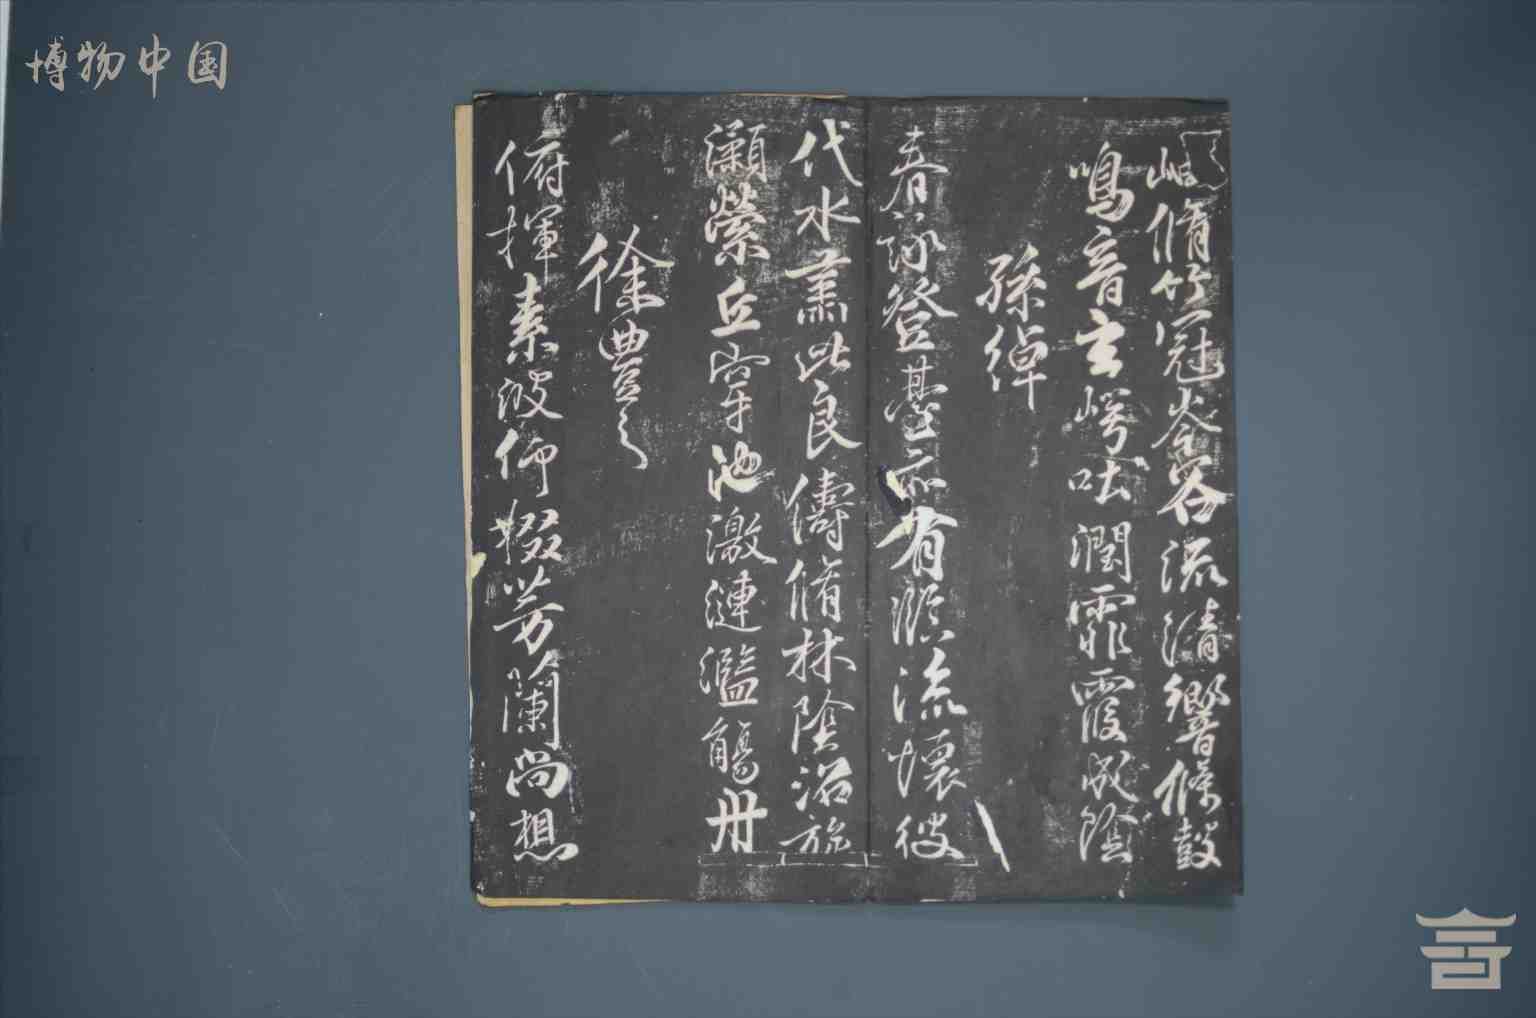 博物中国
岫脩竹冠岑谷流清響條鼓
鳴音玄崿吐潤霏霞成陰
孫綽
春詠登臺亦有臨流懷彼
代水肅此良儔脩林陰沼旋
瀨縈丘穿池激漣濫觴舟
徐豐之
俯揮素波仰掇芳蘭尚想